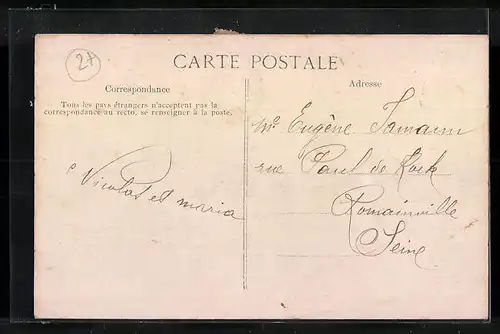 24
CARTE POSTALE
Correspondance
Tous les pays étrangers n'acceptent pas la
correspondance au recto, se renseigner à la poste.
Nicolas et maria
Adresse
Mr Eugène
rue Paul de Kock
Romainville
Seine